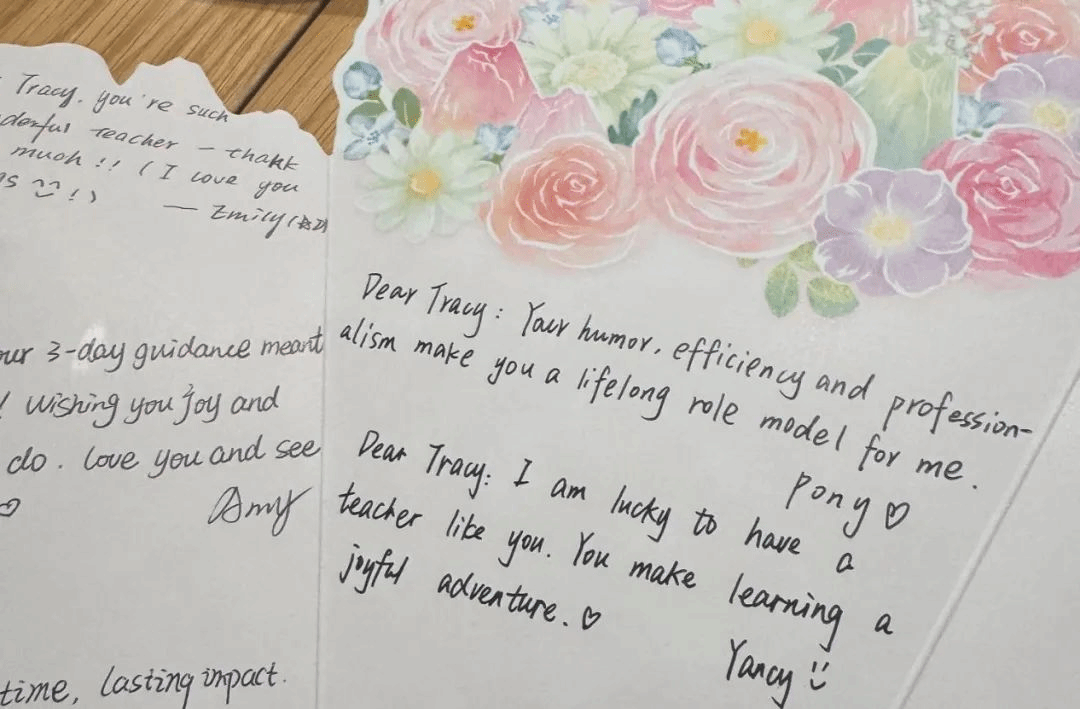 Tracy, you're such
derful teacher — thank
much!! (I love you
— Emily(
our 3-day guidance meant
! Wishing you joy and
do. Love you and see
♡
Amy
time, lasting impact.
Dear Tracy: Your humor, efficiency and profession-
alism make you a lifelong role model for me.
Pony ♡
Dear Tracy: I am lucky to have a
teacher like you. You make learning a
joyful adventure. ♡
Yancy